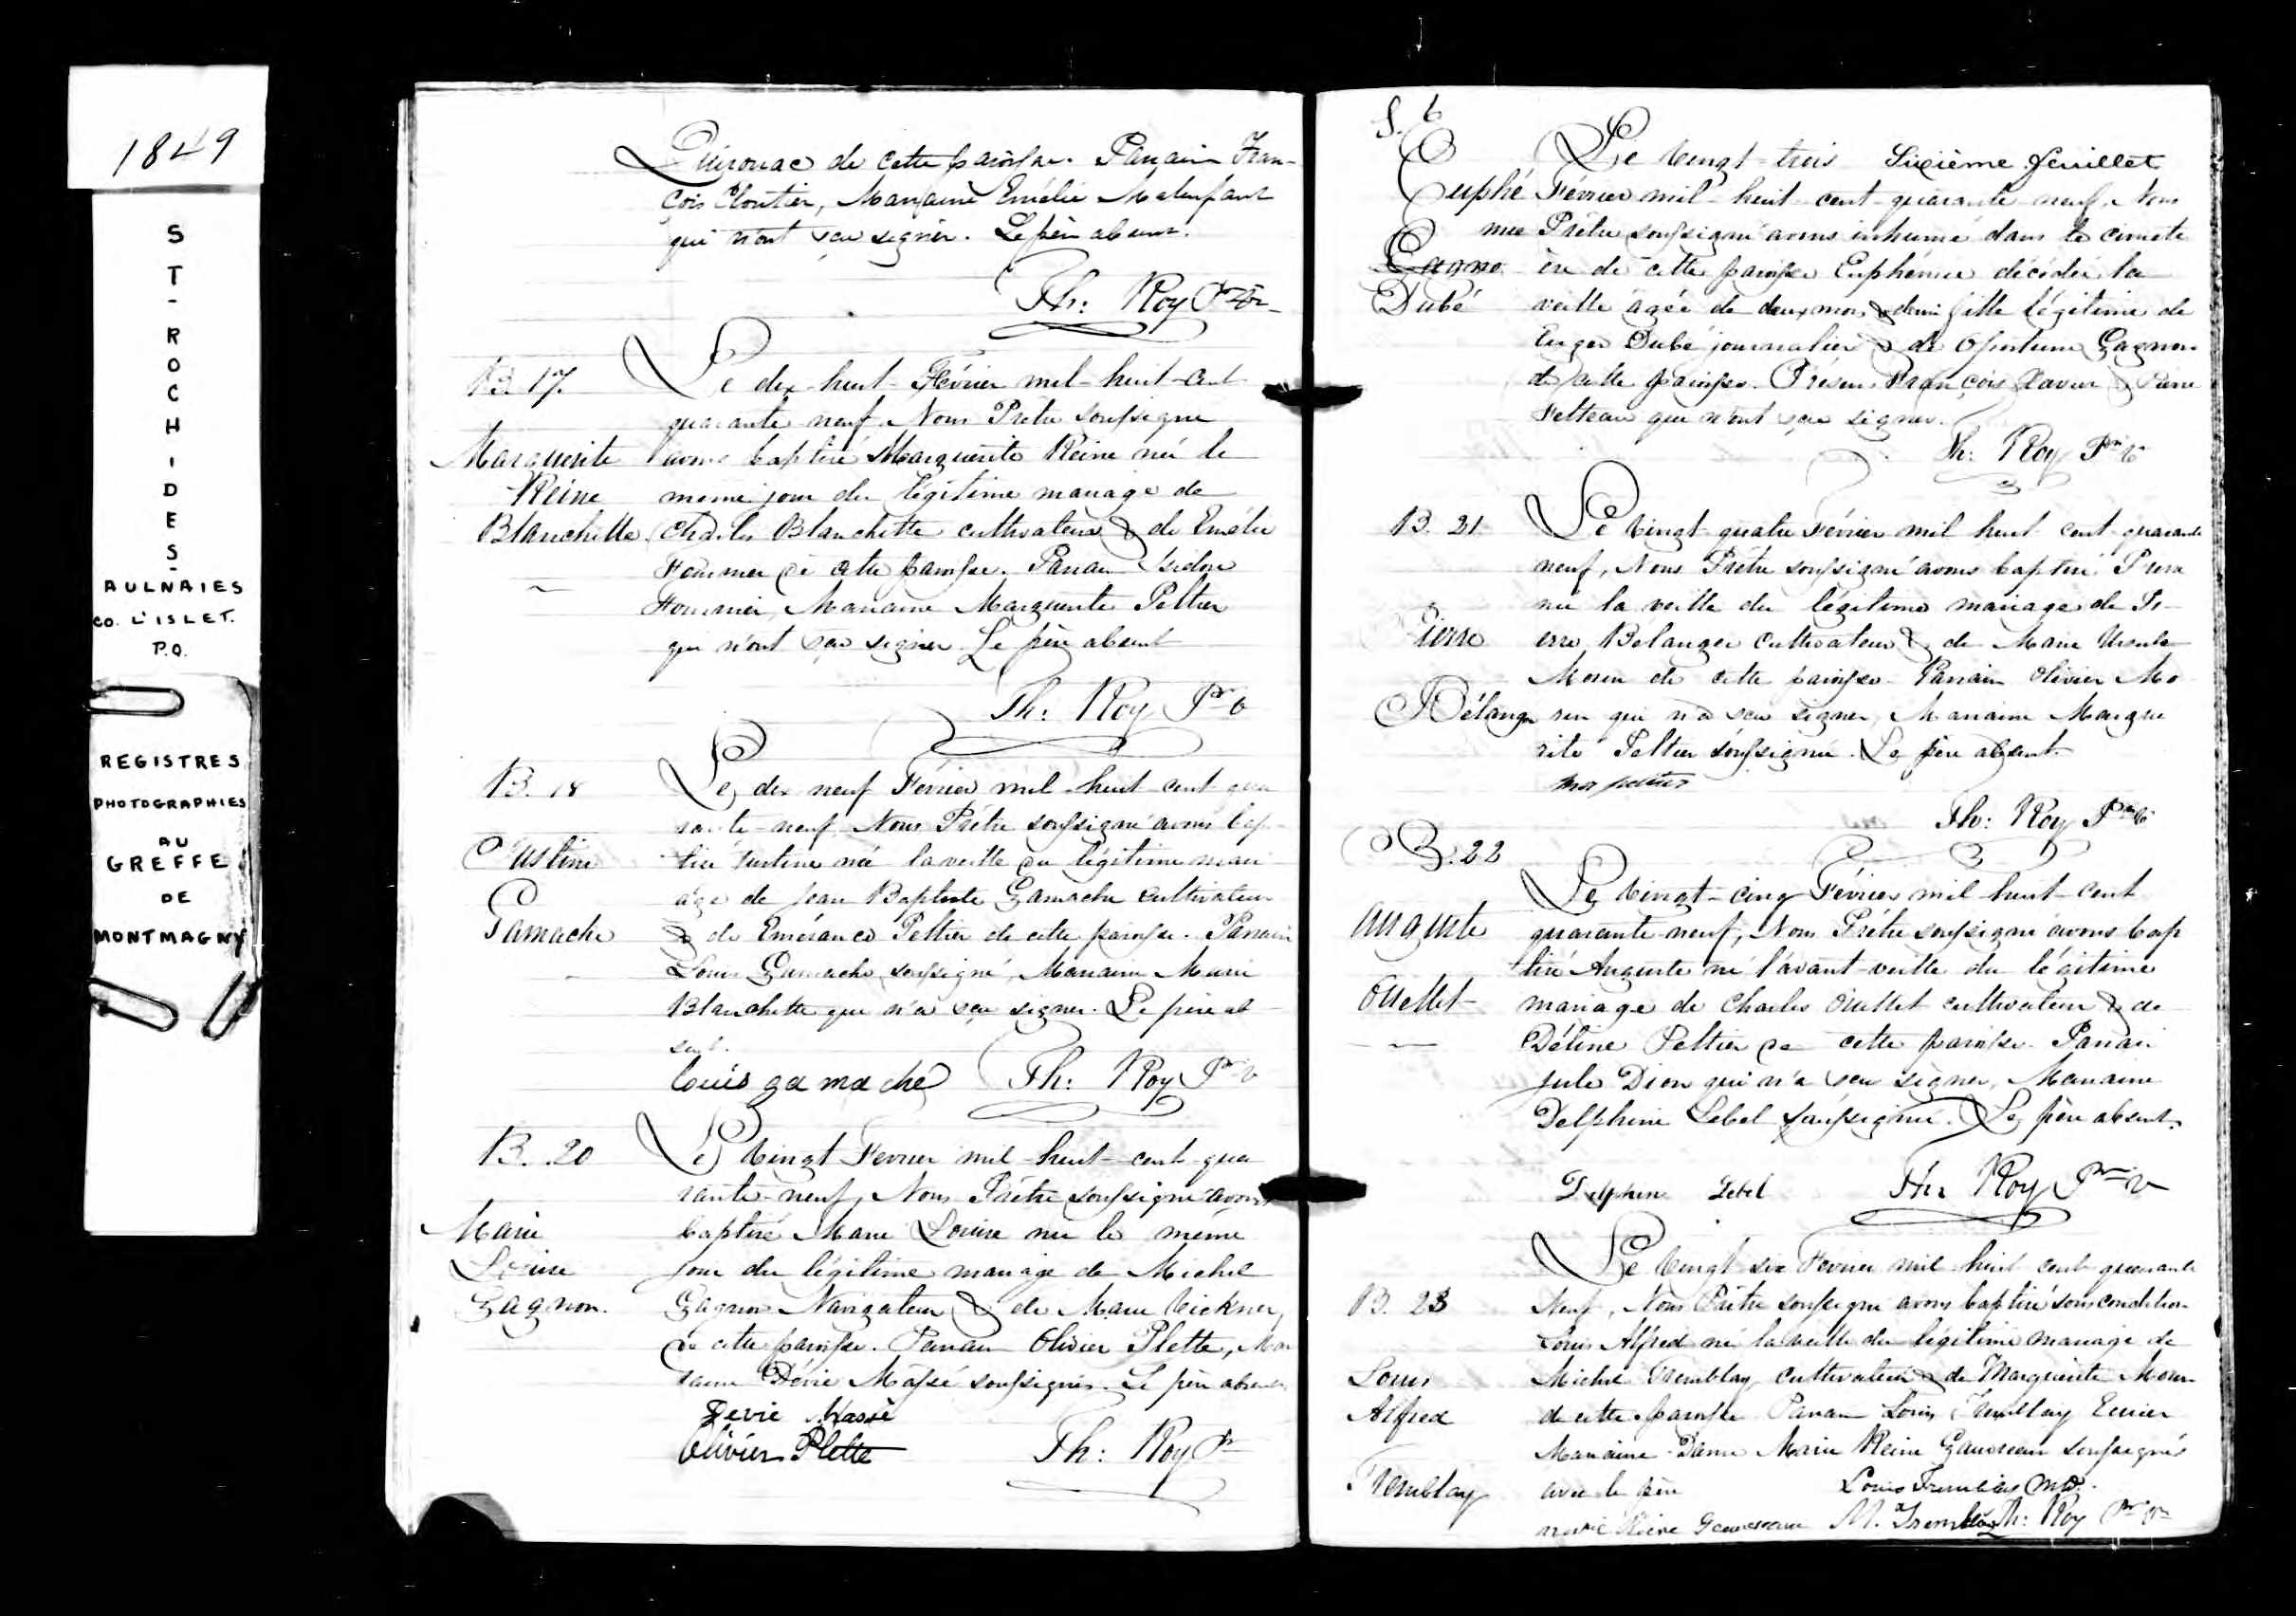 1849
ST-ROCH-DES-
AULNAIES
CO. L'ISLET.
P.Q.
REGISTRES
PHOTOGRAPHIES
AU
GREFFE
DE
MONTMAGNY
Quirouac de cette paroisse. Parrain Fran-
çois Cloutier, Marraine Emélie Malenfant
qui n'ont sçu signer. Le père absent.
Th: Roy Ptre
B. 17.
Marguerite
Reine
Blanchette
Le dix-huit Février mil-huit-cent
quarante neuf. Nous Prêtre soussigné
avons baptisé Marguerite Reine née le
même jour du légitime mariage de
Charles Blanchette cultivateur & de Emélie
de cette paroisse. Parrain Isidore
Marraine Marguerite Peltier
qui n'ont sçu signer. Le père absent
Th: Roy Ptr
B. 18
Justine
Gamache
Le dix neuf Février mil-huit cent qua
rante-neuf, Nous Prêtre soussigné avons bap
tisé Justine née la veille du légitime mari
age de Jean Baptiste Gamache cultivateur
& de Emérance Peltier de cette paroisse. Parrain
Louis Gamache soussigné, Marraine Marie
Blanchette qui n'a sçu signer. Le père ab
sent.
Louis gamache Th: Roy Ptr
B. 20
Marie
Louise
Gagnon.
Le Vingt Fevrier mil-huit-cent-qua
rante-neuf, Nous Prêtre soussigné avons
baptisé Marie Louise née le même
jour du légitime mariage de Michel
Gagnon Navigateur & de Marie
de cette paroisse. Parrain Olivier Plette, Mar
raine Dévie Massé soussignés. Le père absent
Devie Massé
Olivier Plette Th: Roy Ptr
S. 6
Euphé
mie
Gagno
Dubé
Le Vingt-trois Sixième feuillet
Février mil-huit-cent-quarante-neuf. Nous
Prêtre soussigné avons inhumé dans le cimeti
ère de cette paroisse Euphémie décédée la
veille agée de deux mois & demi fille légitime de
Dubé journalier & de Gagnon
de cette paroisse. François Xavier & Pierre
qui n'ont sçu signer.
Th: Roy Ptre
B. 21
Pierre
Bélanger
Le Vingt-quatre Février mil huit cent quarante
neuf, Nous Prêtre soussigné avons baptisé Pierre
né la veille du légitime mariage de Pi-
erre Bélanger Cultivateur & de Marie Ursule
Morin de cette paroisse. Parrain Olivier Mo
rin qui n'a sçu signer, Marraine Margue
rite Peltier soussignée. Le père absent.
Th: Roy Ptre
B. 22
Auguste
Ouellet
Le Vingt-cinq Février mil huit-cent
quarante-neuf, Nous Prêtre soussigné avons bap
tisé Auguste né l'avant-veille du légitime
mariage de Charles Ouellet cultivateur & de
Déline Peltier de cette paroisse. Parrain
Jule Dion qui n'a sçu signer, Marraine
Delphine Lebel soussignée. Le père absent.
Delphine Lebel Th: Roy Ptre
B. 23
Louis
Alfred
Tremblay
Le Vingt six Fevrier mil huit cent quarante
Neuf, Nous Prêtre soussigné avons baptisé sous condition
Louis Alfred né la veille du légitime mariage de
Michel Tremblay cultivateur & de Marguerite Morin
de cette paroisse Parrain Louis Tremblay Ecuier
Marraine Dame Marie Reine Gauvreau soussignés
avec le père Louis Tremblay
Marie Reine Gauvreau M. Tremblay Th: Roy Ptre